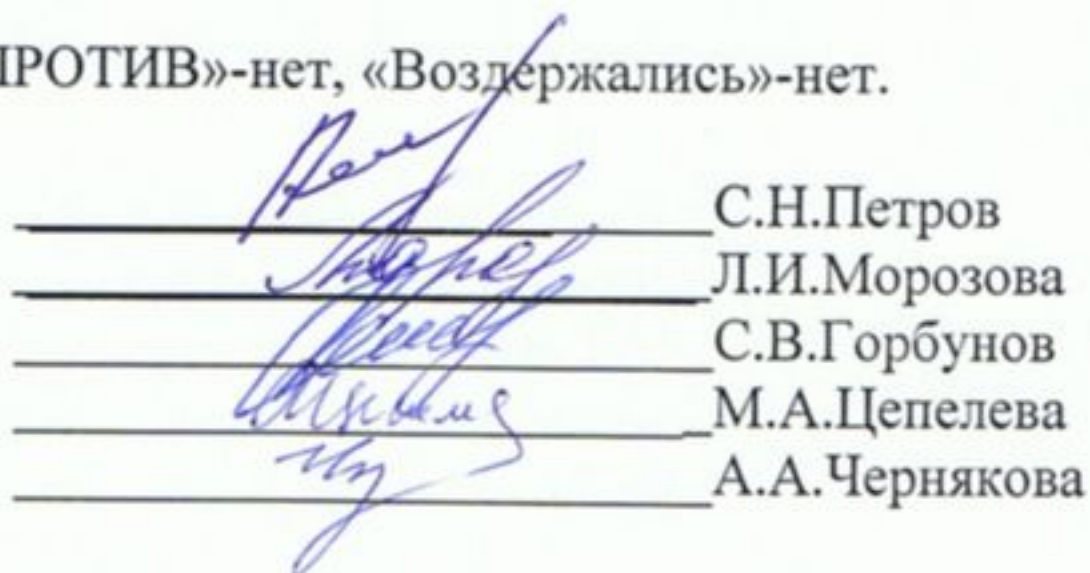 ПРОТИВ»-нет, «Воздержались»-нет.
С.Н.Петров
Л.И.Морозова
С.В.Горбунов
М.А.Цепелева
А.А.Чернякова